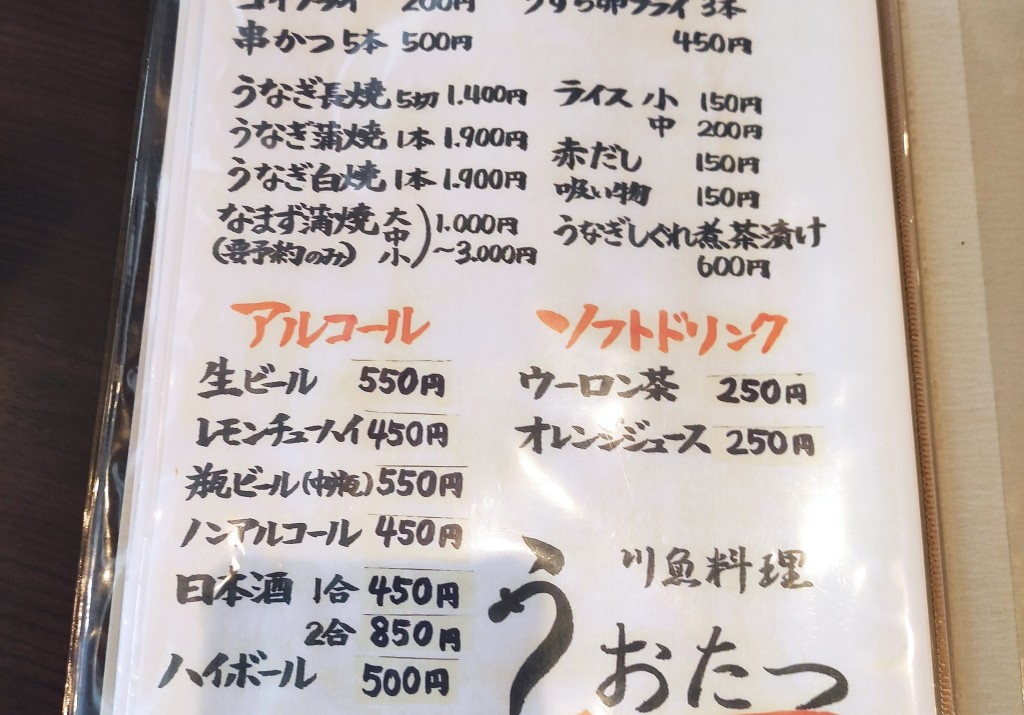 コイフライ 200円
串かつ 5本 500円
うずら卵フライ 3本
450円
うなぎ長焼 5切 1.400円
うなぎ蒲焼 1本 1.900円
うなぎ白焼 1本 1.900円
なまず蒲焼 大 中 小 1.000円
(要予約のみ) ~3.000円
ライス 小 150円
中 200円
赤だし 150円
吸い物 150円
うなぎしぐれ煮茶漬け
600円
アルコール
生ビール 550円
レモンチューハイ 450円
瓶ビール(中瓶) 550円
ノンアルコール 450円
日本酒 1合 450円
2合 850円
ハイボール 500円
ソフトドリンク
ウーロン茶 250円
オレンジジュース 250円
川魚料理
う
おたつ